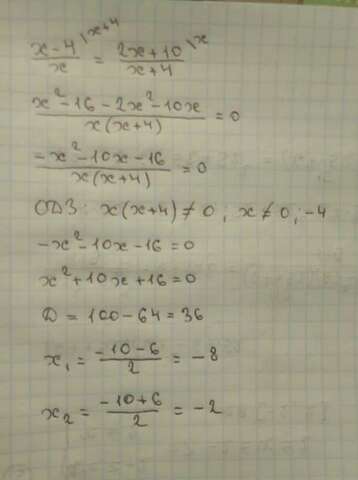 (x-4)/x \x+4 = (2x+10)/(x+4) \x
(x²-16-2x²-10x)/(x(x+4)) = 0
(-x²-10x-16)/(x(x+4)) = 0
ОДЗ: x(x+4)≠0; x≠0; -4
-x²-10x-16=0
x²+10x+16=0
D = 100-64=36
x₁ = (-10-6)/2 = -8
x₂ = (-10+6)/2 = -2